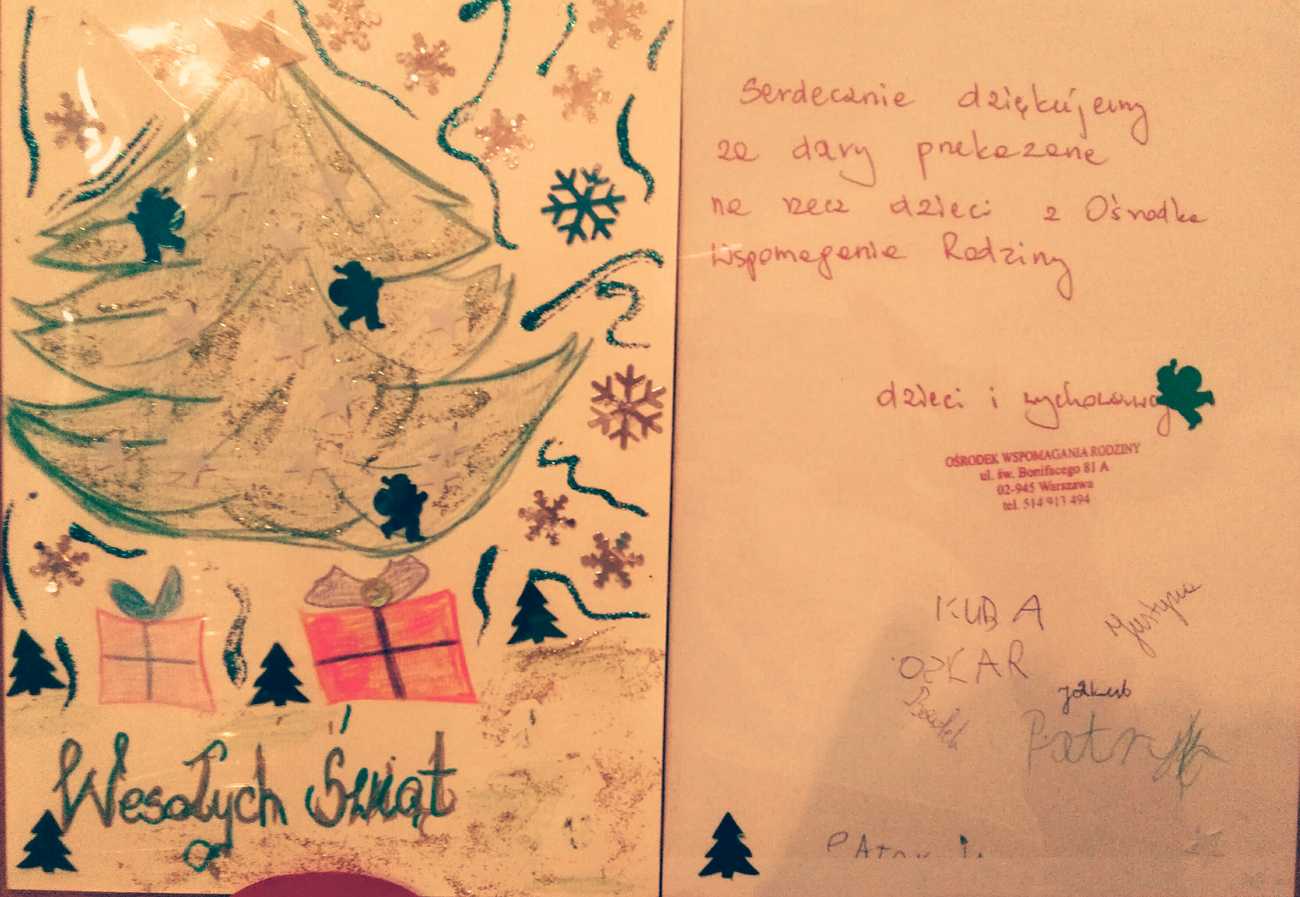 Wesołych Świąt
Serdecznie dziękujemy
za dary przekazane
na rzecz dzieci z Ośrodka
Wspomagania Rodziny
dzieci i wychowawcy
OŚRODEK WSPOMAGANIA RODZINY
ul. św. Bonifacego 81 A
02-945 Warszawa
tel. 514 913 494
KUBA
Justyna
OSKAR
Jakub
Patryk